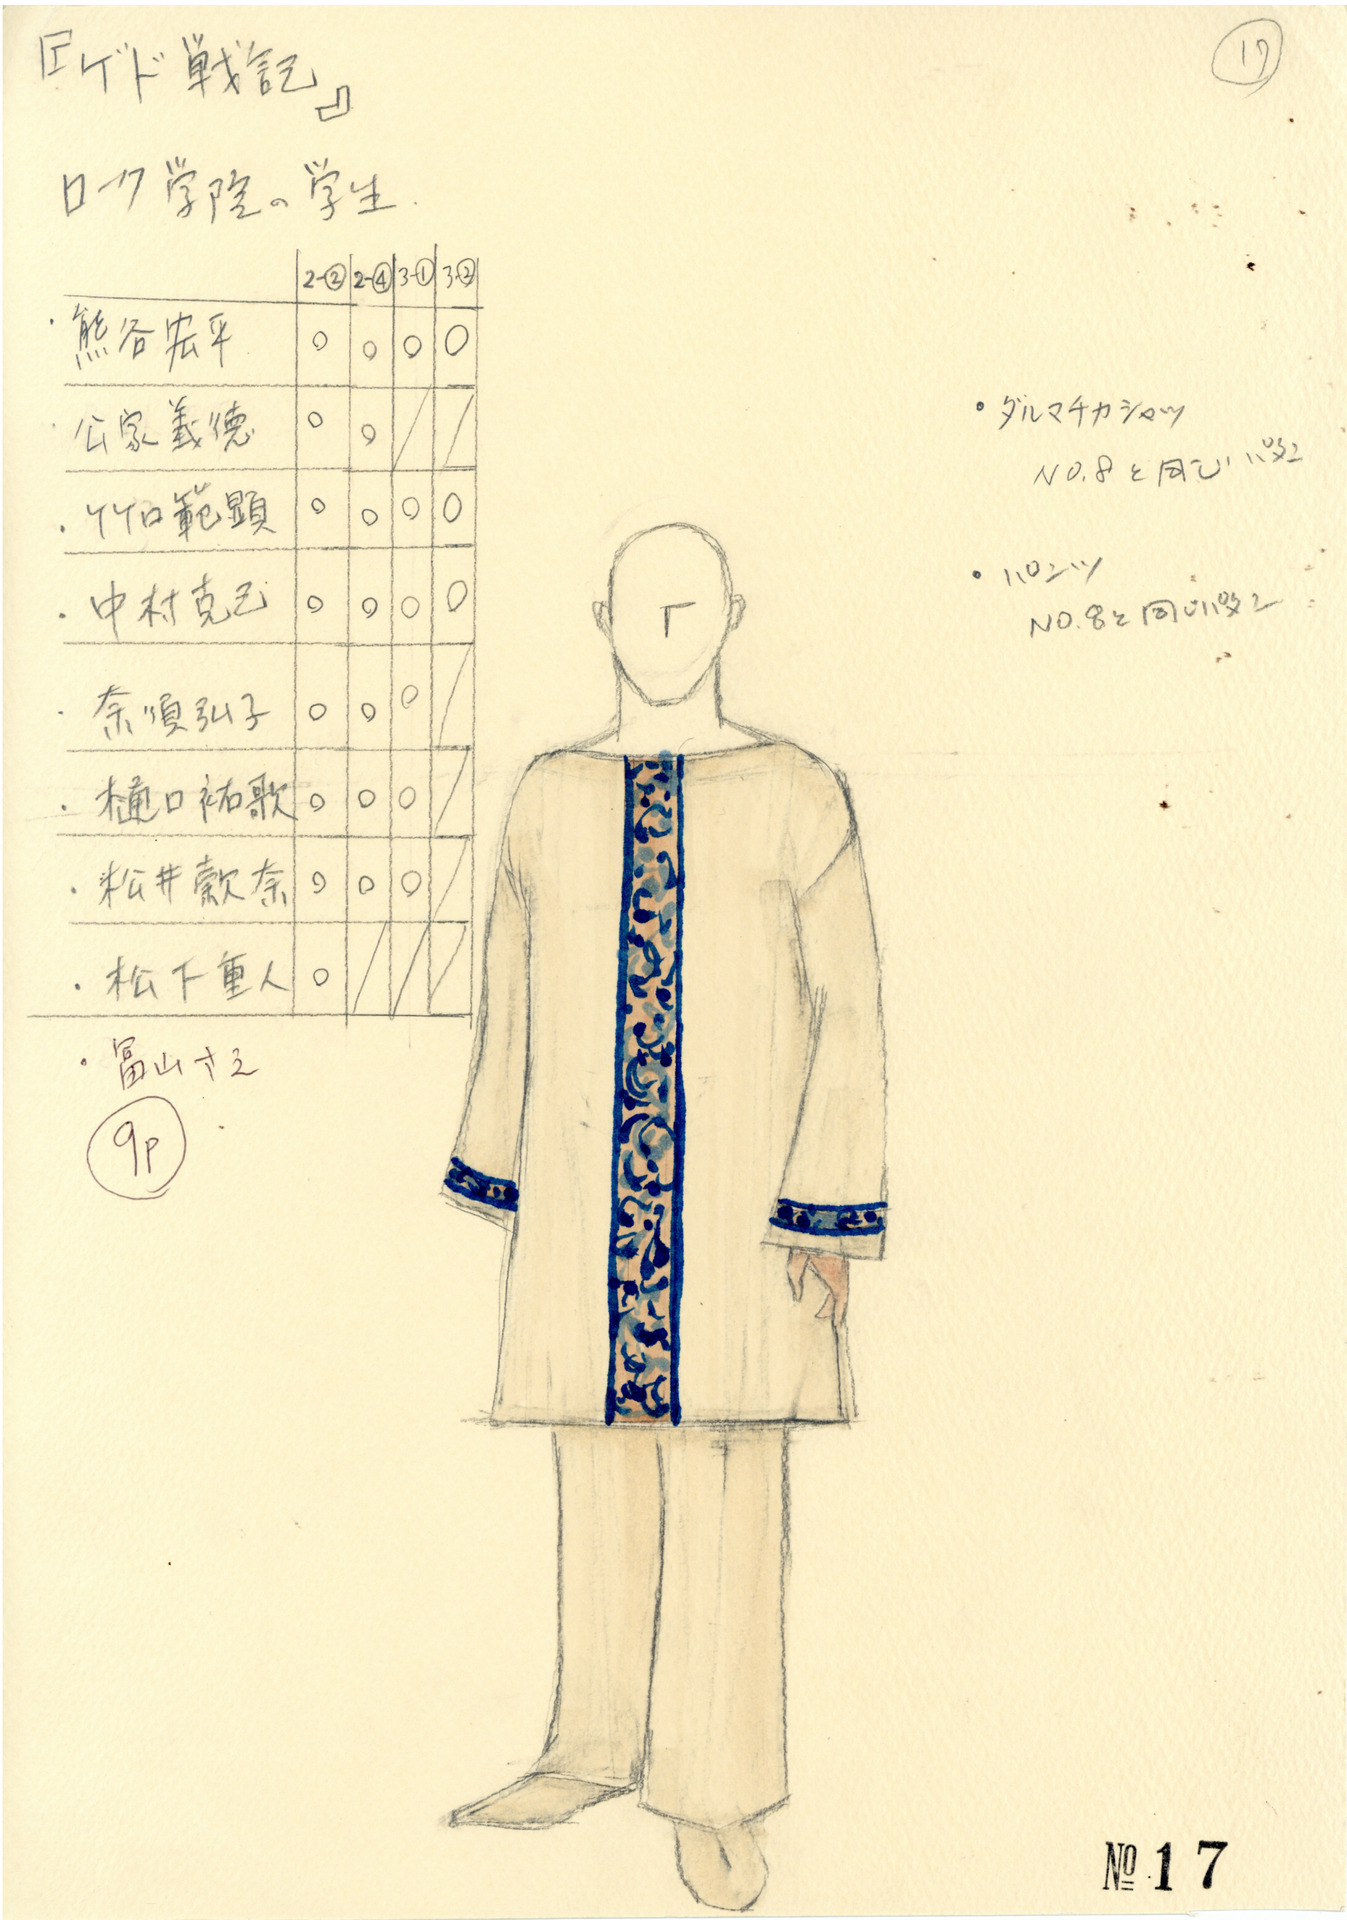 『ゲド戦記』
17
ローク学院の学生.
2-② 2-④ 3-① 3-②
・熊谷宏平 ○ ○ ○ ○
・公家義徳 ○ ○ / /
・竹口範顕 ○ ○ ○ ○
・中村克己 ○ ○ ○ ○
・奈須弘子 ○ ○ ○ /
・樋口祐歌 ○ ○ ○ /
・松井歙奈 ○ ○ ○ /
・松下重人 ○ / / /
・冨山さえ
9P
・ダルマチカシャツ
NO.8と同じパタン
・パンツ
NO.8と同じパタン
№17